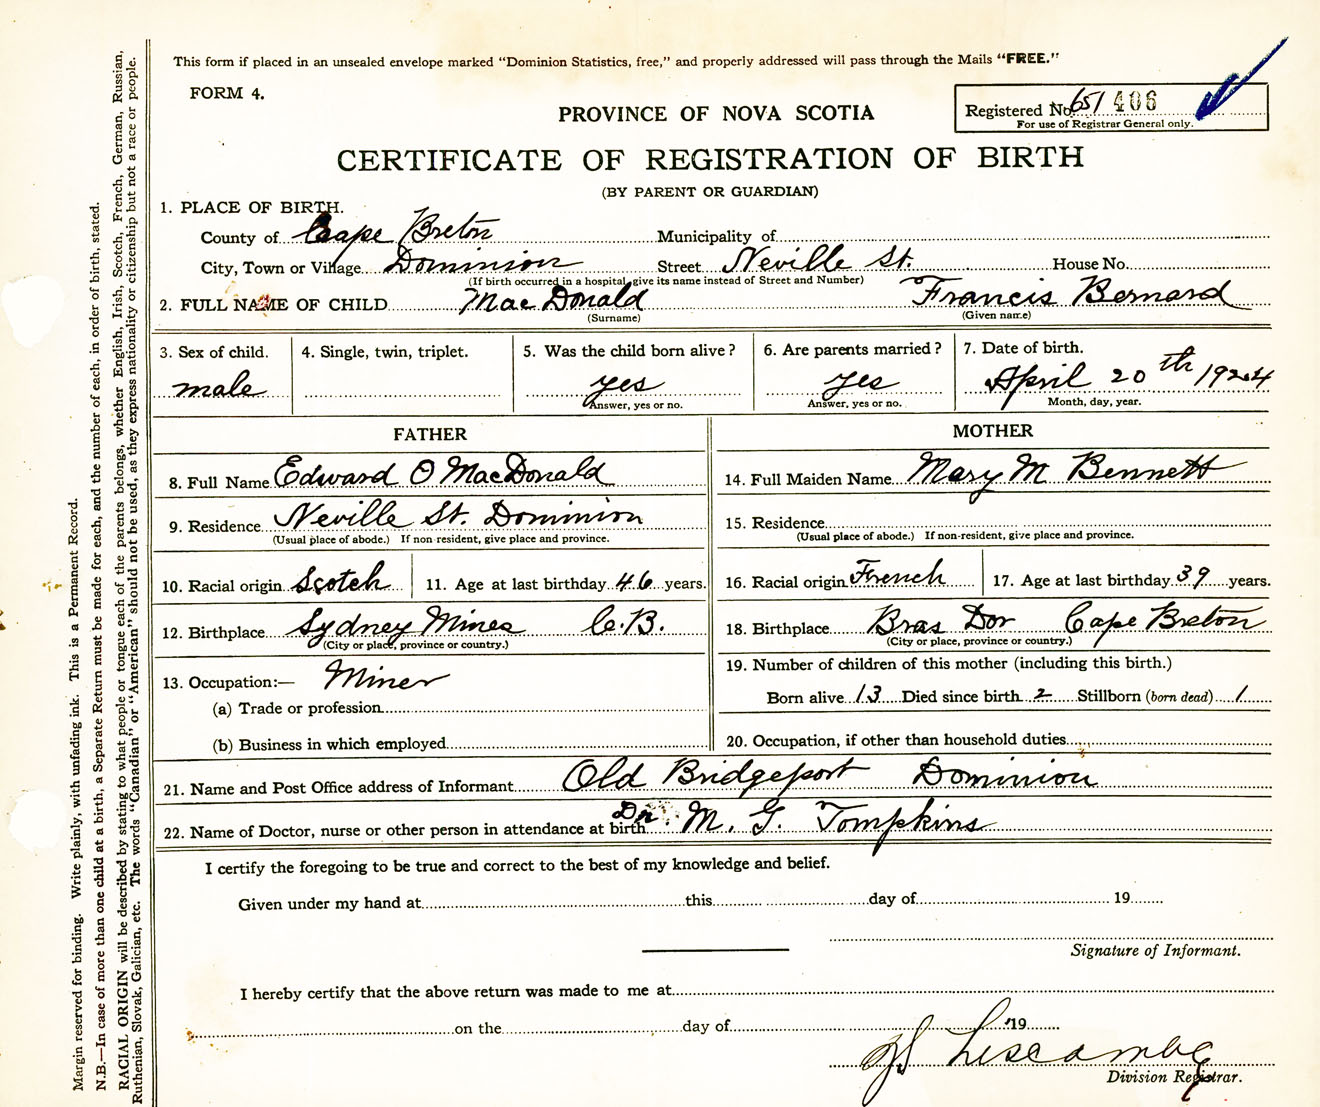 This form if placed in an unsealed envelope marked "Dominion Statistics, free," and properly addressed will pass through the Mails "FREE."
FORM 4.
PROVINCE OF NOVA SCOTIA
Registered No. 651 406
For use of Registrar General only.
CERTIFICATE OF REGISTRATION OF BIRTH
(BY PARENT OR GUARDIAN)
1. PLACE OF BIRTH.
County of Cape Breton Municipality of
City, Town or Village Dominion Street Neville St. House No.
(If birth occurred in a hospital, give its name instead of Street and Number)
2. FULL NAME OF CHILD MacDonald Francis Bernard
(Surname) (Given name)
3. Sex of child. 4. Single, twin, triplet. 5. Was the child born alive? 6. Are parents married? 7. Date of birth.
male yes yes April 20th 1924
Answer, yes or no. Answer, yes or no. Month, day, year.
FATHER MOTHER
8. Full Name Edward O MacDonald 14. Full Maiden Name Mary M Bennett
9. Residence Neville St. Dominion 15. Residence
(Usual place of abode.) If non-resident, give place and province. (Usual place of abode.) If non-resident, give place and province.
10. Racial origin Scotch 11. Age at last birthday 46 years. 16. Racial origin French 17. Age at last birthday 39 years.
12. Birthplace Sydney Mines C.B. 18. Birthplace Bras Dor Cape Breton
(City or place, province or country.) (City or place, province or country.)
13. Occupation:— Miner 19. Number of children of this mother (including this birth.)
(a) Trade or profession Born alive 13 Died since birth 2 Stillborn (born dead) 1
(b) Business in which employed 20. Occupation, if other than household duties
21. Name and Post Office address of Informant Old Bridgeport Dominion
22. Name of Doctor, nurse or other person in attendance at birth Dr. M. G. Tompkins
I certify the foregoing to be true and correct to the best of my knowledge and belief.
Given under my hand at this day of 19
Signature of Informant.
I hereby certify that the above return was made to me at
on the day of 19
Liscombe
Division Registrar.
Margin reserved for binding. Write plainly, with unfading ink. This is a Permanent Record.
N.B.—In case of more than one child at a birth, a Separate Return must be made for each, and the number of each, in order of birth, stated.
RACIAL ORIGIN will be described by stating to what people or tongue each of the parents belongs, whether English, Irish, Scotch, French, German, Russian,
Ruthenian, Slovak, Galician, etc. The words "Canadian" or "American" should not be used, as they express nationality or citizenship but not a race or people.